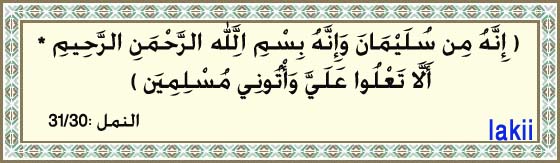 ( إِنَّهُ مِن سُلَيْمَانَ وَإِنَّهُ بِسْمِ اللَّه الرَّحْمَنِ الرَّحِيمِ *
أَلَّا تَعْلُوا عَلَيَّ وَأْتُونِي مُسْلِمِينَ )
النمل :31/30
lakii